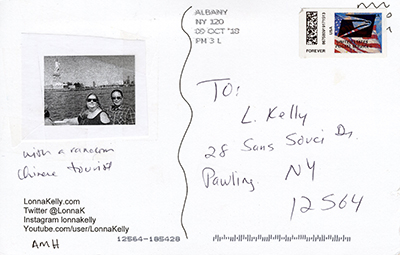 ALBANY
NY 120
09 OCT '18
PM 3 L
FOREVER
USA
TO:
L. Kelly
28 Sans Souci Dr.
Pawling NY
12564
with a random
chinese tourist
LonnaKelly.com
Twitter @LonnaK
Instagram lonnakelly
Youtube.com/user/LonnaKelly
AMH
12564-185428